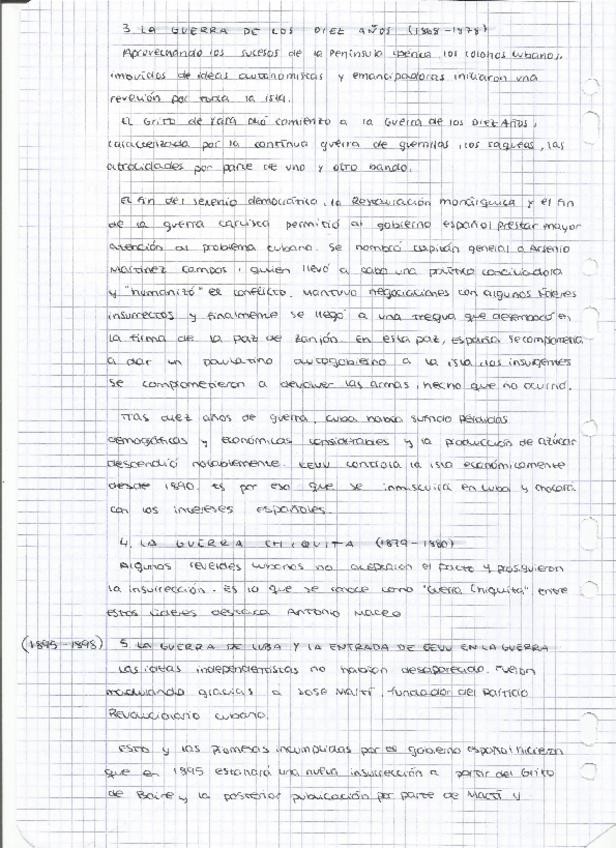 3. LA GUERRA DE LOS DIEZ AÑOS (1868-1878)
Aprovechando los sucesos de la Península Ibérica, los colonos cubanos,
movidos de ideas autonomistas y emancipadoras iniciaron una
revelión por toda la isla.
El Grito de Yara dió comienzo a la Guerra de los DIEZ AÑOS,
caracterizada por la continua guerra de guerrillas, los saqueos, las
atrocidades por parte de uno y otro bando.
El fin del sexenio democrático, la Restauración monárquica y el fin
de la guerra carlista permitió al gobierno español prestar mayor
atención al problema cubano. Se nombró capitán general a Arsenio
Martínez Campos, quien llevó a cabo una política conciliadora
y "humanizó" el conflicto. Mantuvo negociaciones con algunos líderes
insurrectos y finalmente se llegó a una tregua que desembocó en
la firma de la paz de Zanjón. En esta paz, España se comprometía
a dar un paulatino autogobierno a la isla, los insurgentes
se comprometieron a devolver las armas, hecho que no ocurrió.
Tras diez años de guerra, Cuba había sufrido pérdidas
demográficas y económicas considerables y la producción de azúcar
descendió notablemente. EEUU controla la isla económicamente
desde 1890, es por eso que se inmiscuirá en Cuba y chocará
con los intereses españoles.
4. LA GUERRA CHIQUITA (1879-1880)
Algunos reveldes cubanos no aceptaron el pacto y prosiguieron
la insurrección. Es lo que se conoce como "Guerra Chiquita" entre
estos líderes destaca Antonio Maceo
(1895-1898) 5. LA GUERRA DE CUBA Y LA ENTRADA DE EEUU EN LA GUERRA
Las ideas independentistas no habían desaparecido. Fueron
madurando gracias a José Martí, fundador del Partido
Revolucionario Cubano.
Esto y las promesas incumplidas por el gobierno español hicieron
que en 1895 estallará una nueva insurrección a partir del Grito
de Baire y la posterior publicación por parte de Martí y